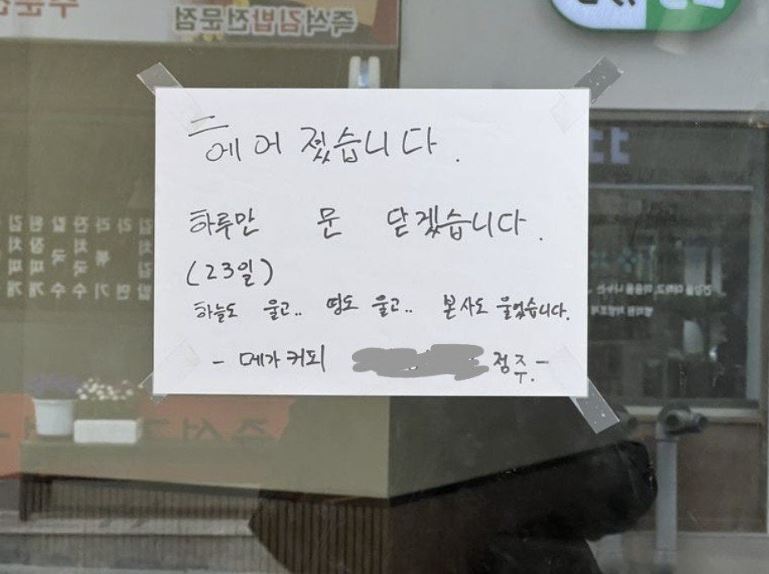 즉석김밥전문점
헤어졌습니다.
하루만 문 닫겠습니다.
(23일)
하늘도 울고.. 땅도 울고.. 본사도 울었습니다.
- 메가커피 점주. -